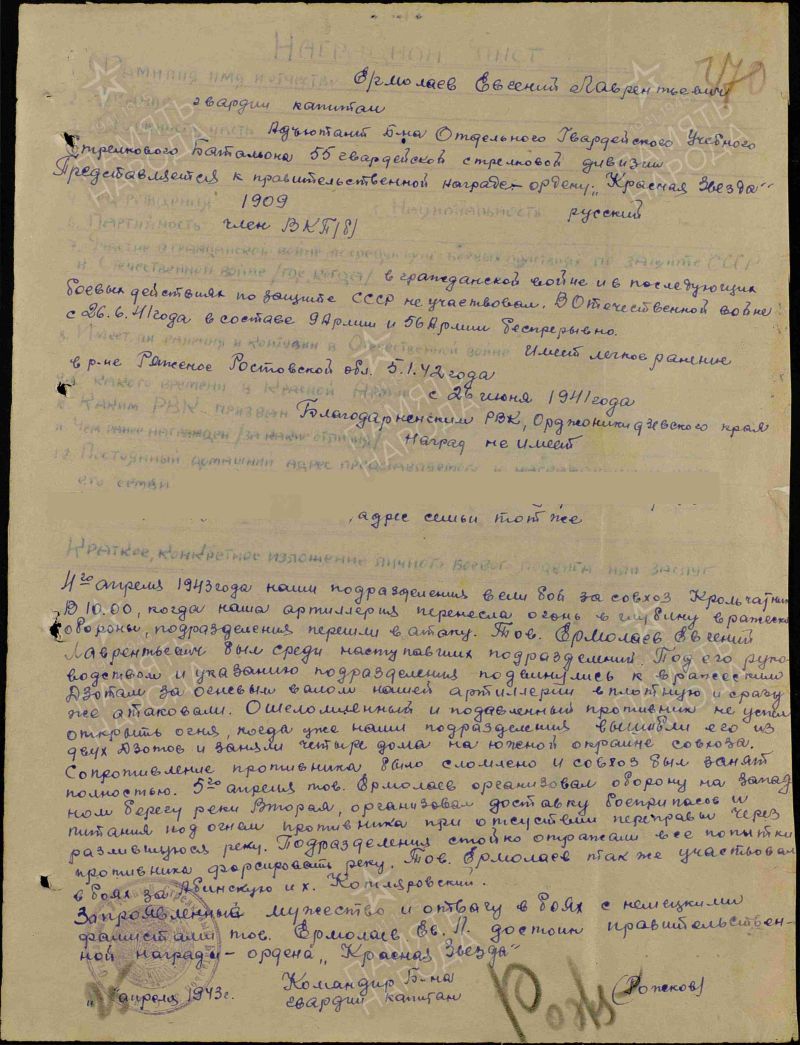 НАГРАДНОЙ ЛИСТ
470
1. Фамилия имя и отчество Ермолаев Евгений Лаврентьевич
2. Звание гвардии капитан
часть Адъютант Б-на Отдельного Гвардейского Учебного
Стрелкового Батальона 55 гвардейской стрелковой дивизии
Представляется к правительственной награде - ордену „Красная Звезда"
рождения 1909 Национальность русский
6. Партийность член ВКП/б/
7. Участие в гражданской войне последующих боевых действиях по защите СССР
и Отечественной войне /где, когда/ в гражданской войне и в последующих
боевых действиях по защите СССР не участвовал. В Отечественной войне
с 26.6.41 года в составе 9 Армии и 56 Армии беспрерывно.
8. Имеет ли ранения и контузии в Отечественной войне Имеет легкое ранение
в р-не Ряженое Ростовской обл. 5.1.42 года
С какого времени в Красной Армии с 26 июня 1941 года
10. Каким РВК призван Благодарненским РВК, Орджоникидзевского края
11. Чем ранее награжден /за какие отличия/ Наград не имеет
12. Постоянный домашний адрес представляемого к награждению
его семьи
, адрес семьи тот же
Краткое, конкретное изложение личного боевого подвига или заслуг
4го апреля 1943 года наши подразделения вели бой за совхоз Крольчатник
В 10.00, когда наша артиллерия перенесла огонь в глубину вражеской
обороны, подразделения перешли в атаку. Тов. Ермолаев Евгений
Лаврентьевич был среди наступавших подразделений. Под его руко-
водством и указанию подразделения подвинулись к вражеским
Дзотам за огневым валом нашей артиллерии вплотную и сразу
же атаковали. Ошеломленный и подавленный противник не успел
открыть огня, когда уже наши подразделения вышибли его из
двух Дзотов и заняли четыре дома на южной окраине совхоза.
Сопротивление противника было сломлено и совхоз был занят
полностью. 5го апреля тов. Ермолаев организовал оборону на запад
ном берегу реки Вторая, организовал доставку боеприпасов и
питания под огнем противника при отсуствии переправы через
разлившуюся реку. Подразделения стойко отражали все попытки
противника форсировать реку. Тов. Ермолаев также участвовал
в боях за Абинскую и х. Копляровский.
За проявленный мужество и отвагу в боях с немецкими
фашистами тов. Ермолаев Ев. Л. достоин правительствен-
ной награды - ордена „Красная Звезда"
Командир Б-на
„ " апреля 1943г. гвардии капитан (Рожков)